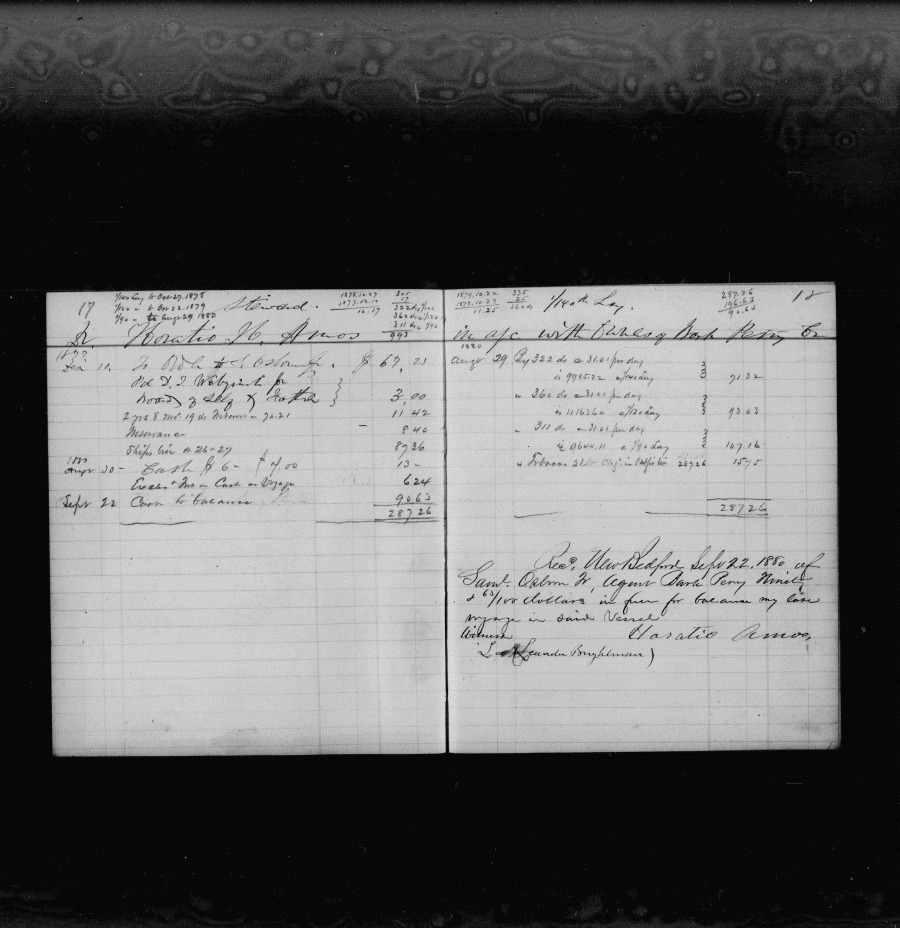 17
1/140 Aug to Oct 27. 1878
1/120 " Oct 22. 1879
1/90 " to Augt 29. 1880
Steward.
1878.10.27
1877.12.10
10.17
305
17
322 ds 1/140
360 ds 1/120
311 ds 1/90
993
Dr Horatio H. Amos
1877
Dec 10. To Bill # S. Osborn Jr. $ 67.21
Pd
Board of Self & Father 3.00
2 yrs 8 mos 19 ds Interest on 70.21 11 42
Insurance 8 40
Ships bill # 26-27 87 36
1880
Augt 30 - Cash $ 6 - $ 7.00 13 -
Ins on Cash on Voyage 6 24
Sept 22 Cash to balance 90 63
287 26
1879.10.22
1878.10.27
11.25
335
25
360 ds
1/140th Lay.
287.26
196.63
90.63
18
in a/c with Owners Bark Perry Cr
1880
Augt 29 By 322 ds @ 31.01 per day
is 9985.22 @ 1/140 Lay 71 32
" 360 ds @ 31.01 per day
is 11163.60 @ 1/120 Lay 93 03
" 311 ds @ 31.01 per day
is 9644.11 @ 1/90 Lay 107 16
" Tobacco Chgd in Outfit bill 287 26 15 75
287 26
Recd, New Bedford Sept 22, 1880 of
Saml. Osborn Jr, Agent Bark Perry Ninety
& 63/100 dollars in full for balance my last
voyage in said Vessel
Witness Horatio Amos,
Leander Brightman)